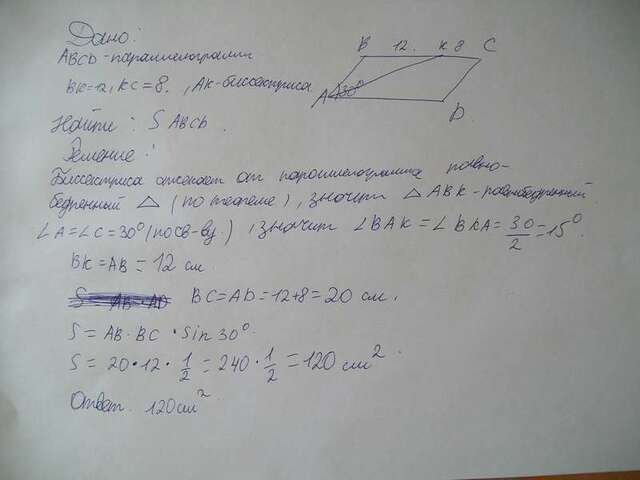 Дано:
ABCD - параллелограмм
BK=12, KC=8. , AK-биссектриса
Найти : S ABCD .
B 12. K 8 C
A 30° D
Решение :
Биссектриса отсекает от параллелограмма равно-
бедренный △ (по теореме), значит △ ABK-равнобедренный.
∠A=∠C=30° (по св-ву.) , значит ∠BAK=∠BKA=30/2=15°
BK=AB=12 см.
BC=AD=12+8=20 см.
S=AB·BC·sin30°.
S=20·12·1/2=240·1/2=120 см².
Ответ. 120см²